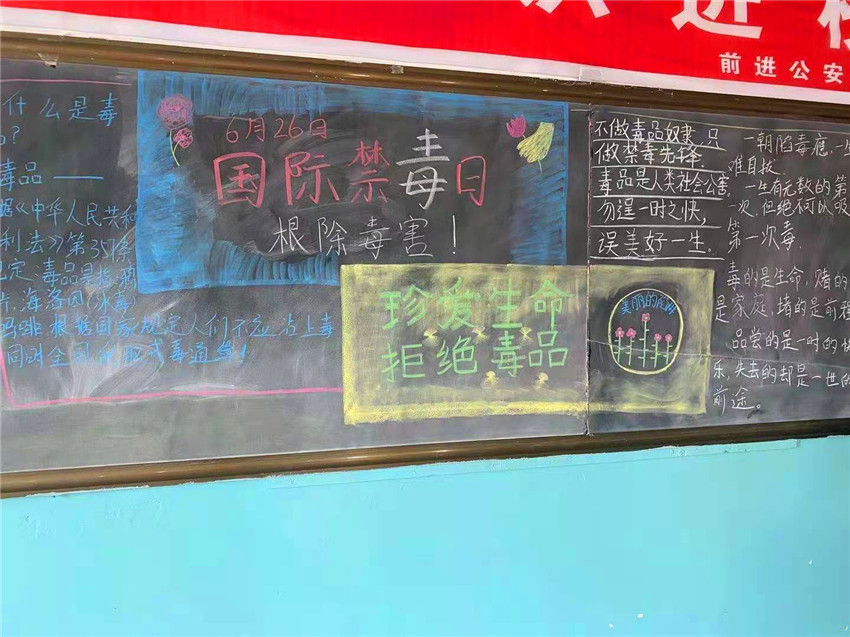 进校
前进公安
什么是毒
?
毒品——
据《中华人民共和
刑法》第35
定:毒品是指鸦
片,海洛因(冰毒)
吗啡.根据国家规定人们不应当上毒
6月26日
国际禁毒日
根除毒害!
珍爱生命
拒绝毒品
不做毒品奴隶,只
做禁毒先锋.
毒品是人类社会公害
勿逞一时之快,
误美好一生.
美丽的
一朝陷毒瘾,一生
难自拔.
一生有无数的第
一次,但绝不可以吸
第一次毒
毒的是生命,赌的
是家庭,堵的是前程
品尝的是一时的快
乐,失去的却是一世的
前途。